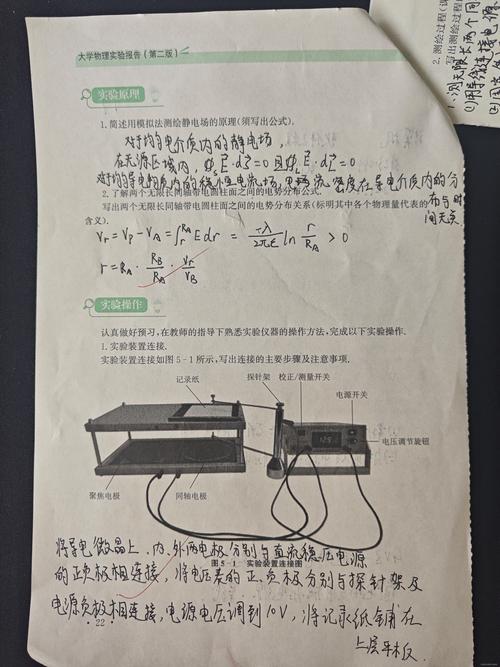 大学物理实验报告(第二版)
实验原理
1.简述用模拟法测绘静电场的原理(须写出公式).
对均匀电介质内的静电场,
在无源区域内,
对均匀导电物质内的稳恒电流场,电流密度在导电介质内的分
布与时
间无关
2.了解两个无限长同轴带电圆柱面之间的电势分布公式.
写出两个无限长同轴带电圆柱面之间的电势分布关系(标明其中各个物理量代表的
含义).
Vr = Vp - VA = ∫ E dr = -λ/2πε ln r/RA > 0
r = RA · RB/RA · Vr/VB
实验操作
认真做好预习,在教师的指导下熟悉实验仪器的操作方法,完成以下实验操作.
1.实验装置连接.
实验装置连接如图 5-1 所示,写出连接的主要步骤及注意事项.
记录纸
探针架
校正/测量开关
电源开关
电压调节旋钮
聚焦电极
同轴电极
图 5-1 实验装置连接图
将导电微晶上、内、外两电极分别与直流稳压电源
的正负极相连接,将电压表的正、负极分别与探针架及
电源负极相连接,电源电压调到10V,将记录纸铺在
上层平板.
22
2.测绘过程
写出测绘过程
1.测无限长两个同
①用导线连接电源